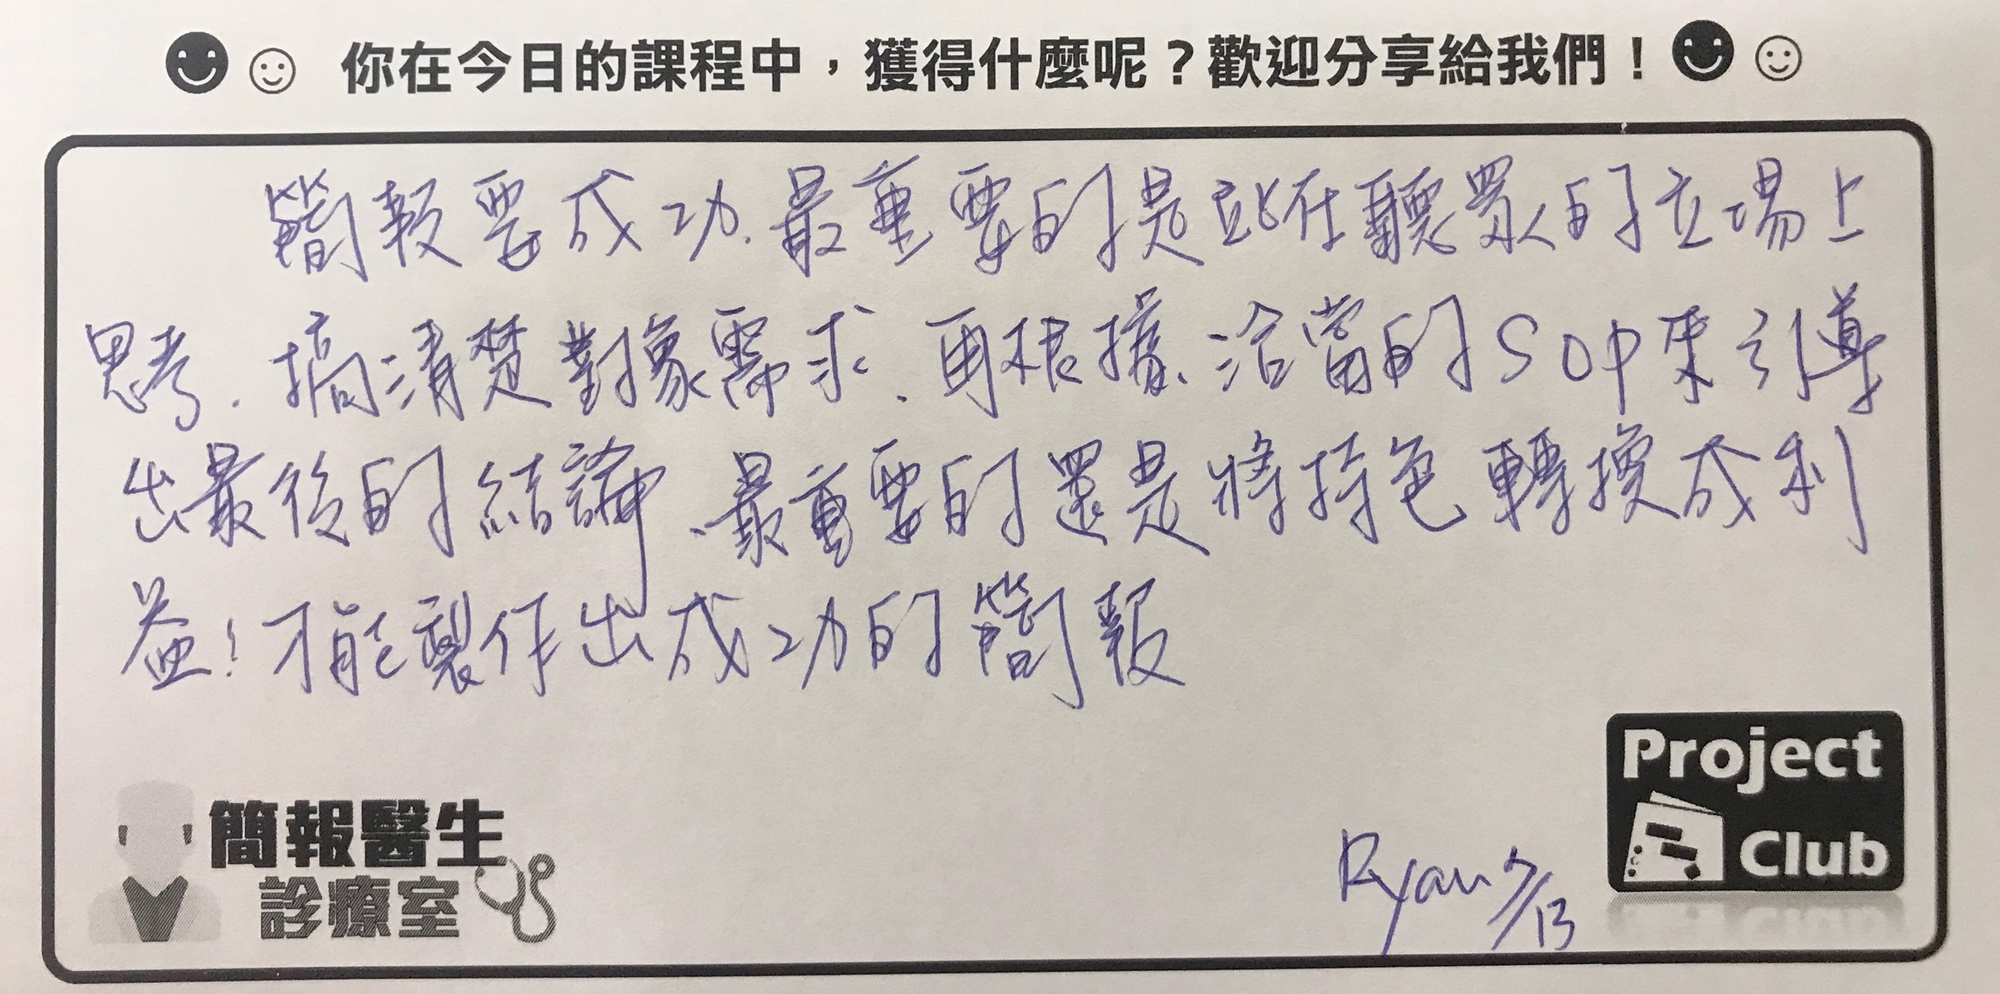 你在今日的課程中，獲得什麼呢？歡迎分享給我們！
簡報要成功、最重要的是站在聽眾的立場上
思考、搞清楚對象需求、再根據洽當的SOP來引導
出最後的結論、最重要的還是將特色轉換成利
益！才能製作出成功的簡報
簡報醫生
診療室
Ryan 7/13
Project
Club